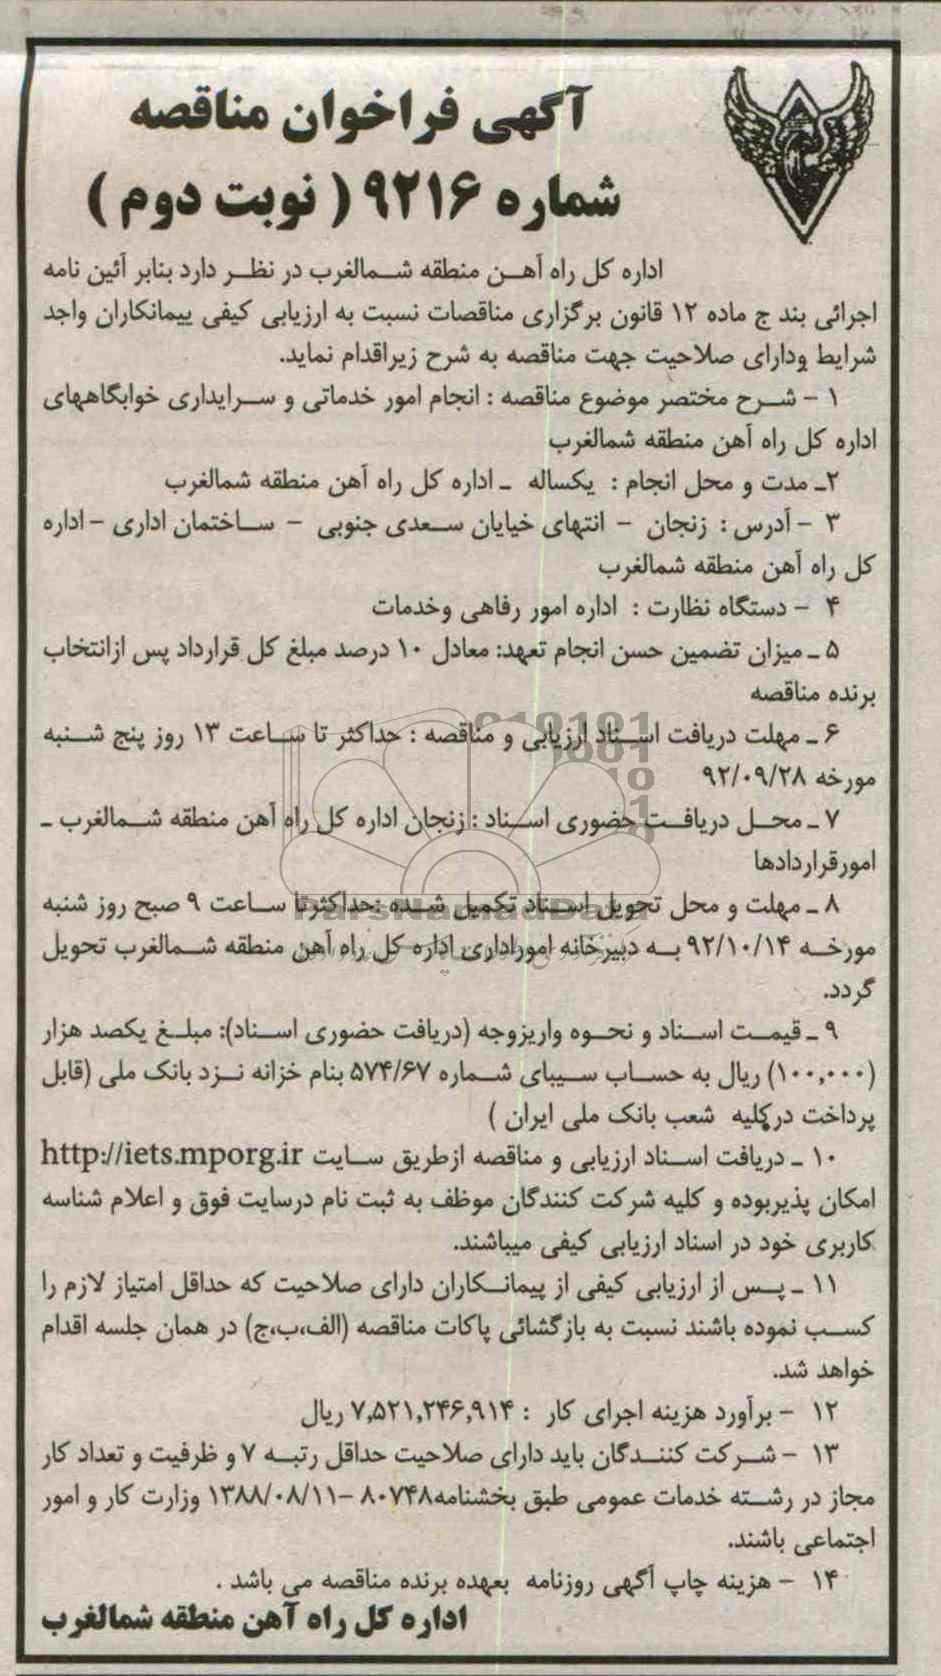 آگهی فراخوان مناقصه
شماره ۹۲۱۶ ( نوبت دوم )
اداره کل راه آهن منطقه شمالغرب در نظر دارد بنابر آئین نامه
اجرائی بند ج ماده ۱۲ قانون برگزاری مناقصات نسبت به ارزیابی کیفی پیمانکاران واجد
شرایط ودارای صلاحیت جهت مناقصه به شرح زیراقدام نماید.
۱ - شرح مختصر موضوع مناقصه : انجام امور خدماتی و سرایداری خوابگاههای
اداره کل راه آهن منطقه شمالغرب
۲ـ مدت و محل انجام : یکساله ـ اداره کل راه آهن منطقه شمالغرب
۳ - آدرس : زنجان - انتهای خیایان سعدی جنوبی - ساختمان اداری - اداره
کل راه آهن منطقه شمالغرب
۴ - دستگاه نظارت : اداره امور رفاهی وخدمات
۵ ـ میزان تضمین حسن انجام تعهد: معادل ۱۰ درصد مبلغ کل قرارداد پس ازانتخاب
برنده مناقصه
۶ ـ مهلت دریافت اسناد ارزیابی و مناقصه : حداکثر تا ساعت ۱۳ روز پنج شنبه
مورخه ۹۲/۰۹/۲۸
۷ ـ محل دریافت حضوری اسناد : زنجان اداره کل راه آهن منطقه شمالغرب ـ
امورقراردادها
۸ ـ مهلت و محل تحویل اسناد تکمیل شده :حداکثرتا ساعت ۹ صبح روز شنبه
مورخه ۹۲/۱۰/۱۴ به دبیرخانه اموراداری اداره کل راه آهن منطقه شمالغرب تحویل
گردد.
۹ ـ قیمت اسناد و نحوه واریزوجه (دریافت حضوری اسناد): مبلغ یکصد هزار
(۱۰۰,۰۰۰) ریال به حساب سیبای شماره ۵۷۴/۶۷ بنام خزانه نزد بانک ملی (قابل
پرداخت درکلیه شعب بانک ملی ایران )
۱۰ ـ دریافت اسناد ارزیابی و مناقصه ازطریق سایت http://iets.mporg.ir
امکان پذیربوده و کلیه شرکت کنندگان موظف به ثبت نام درسایت فوق و اعلام شناسه
کاربری خود در اسناد ارزیابی کیفی میباشند.
۱۱ ـ پس از ارزیابی کیفی از پیمانکاران دارای صلاحیت که حداقل امتیاز لازم را
کسب نموده باشند نسبت به بازگشائی پاکات مناقصه (الف،ب،ج) در همان جلسه اقدام
خواهد شد.
۱۲ - برآورد هزینه اجرای کار : ۷,۵۲۱,۲۴۶,۹۱۴ ریال
۱۳ - شرکت کنندگان باید دارای صلاحیت حداقل رتبه ۷ و ظرفیت و تعداد کار
مجاز در رشته خدمات عمومی طبق بخشنامه۸۰۷۴۸ -۱۳۸۸/۰۸/۱۱ وزارت کار و امور
اجتماعی باشند.
۱۴ - هزینه چاپ آگهی روزنامه بعهده برنده مناقصه می باشد .
اداره کل راه آهن منطقه شمالغرب
ParsNamadData